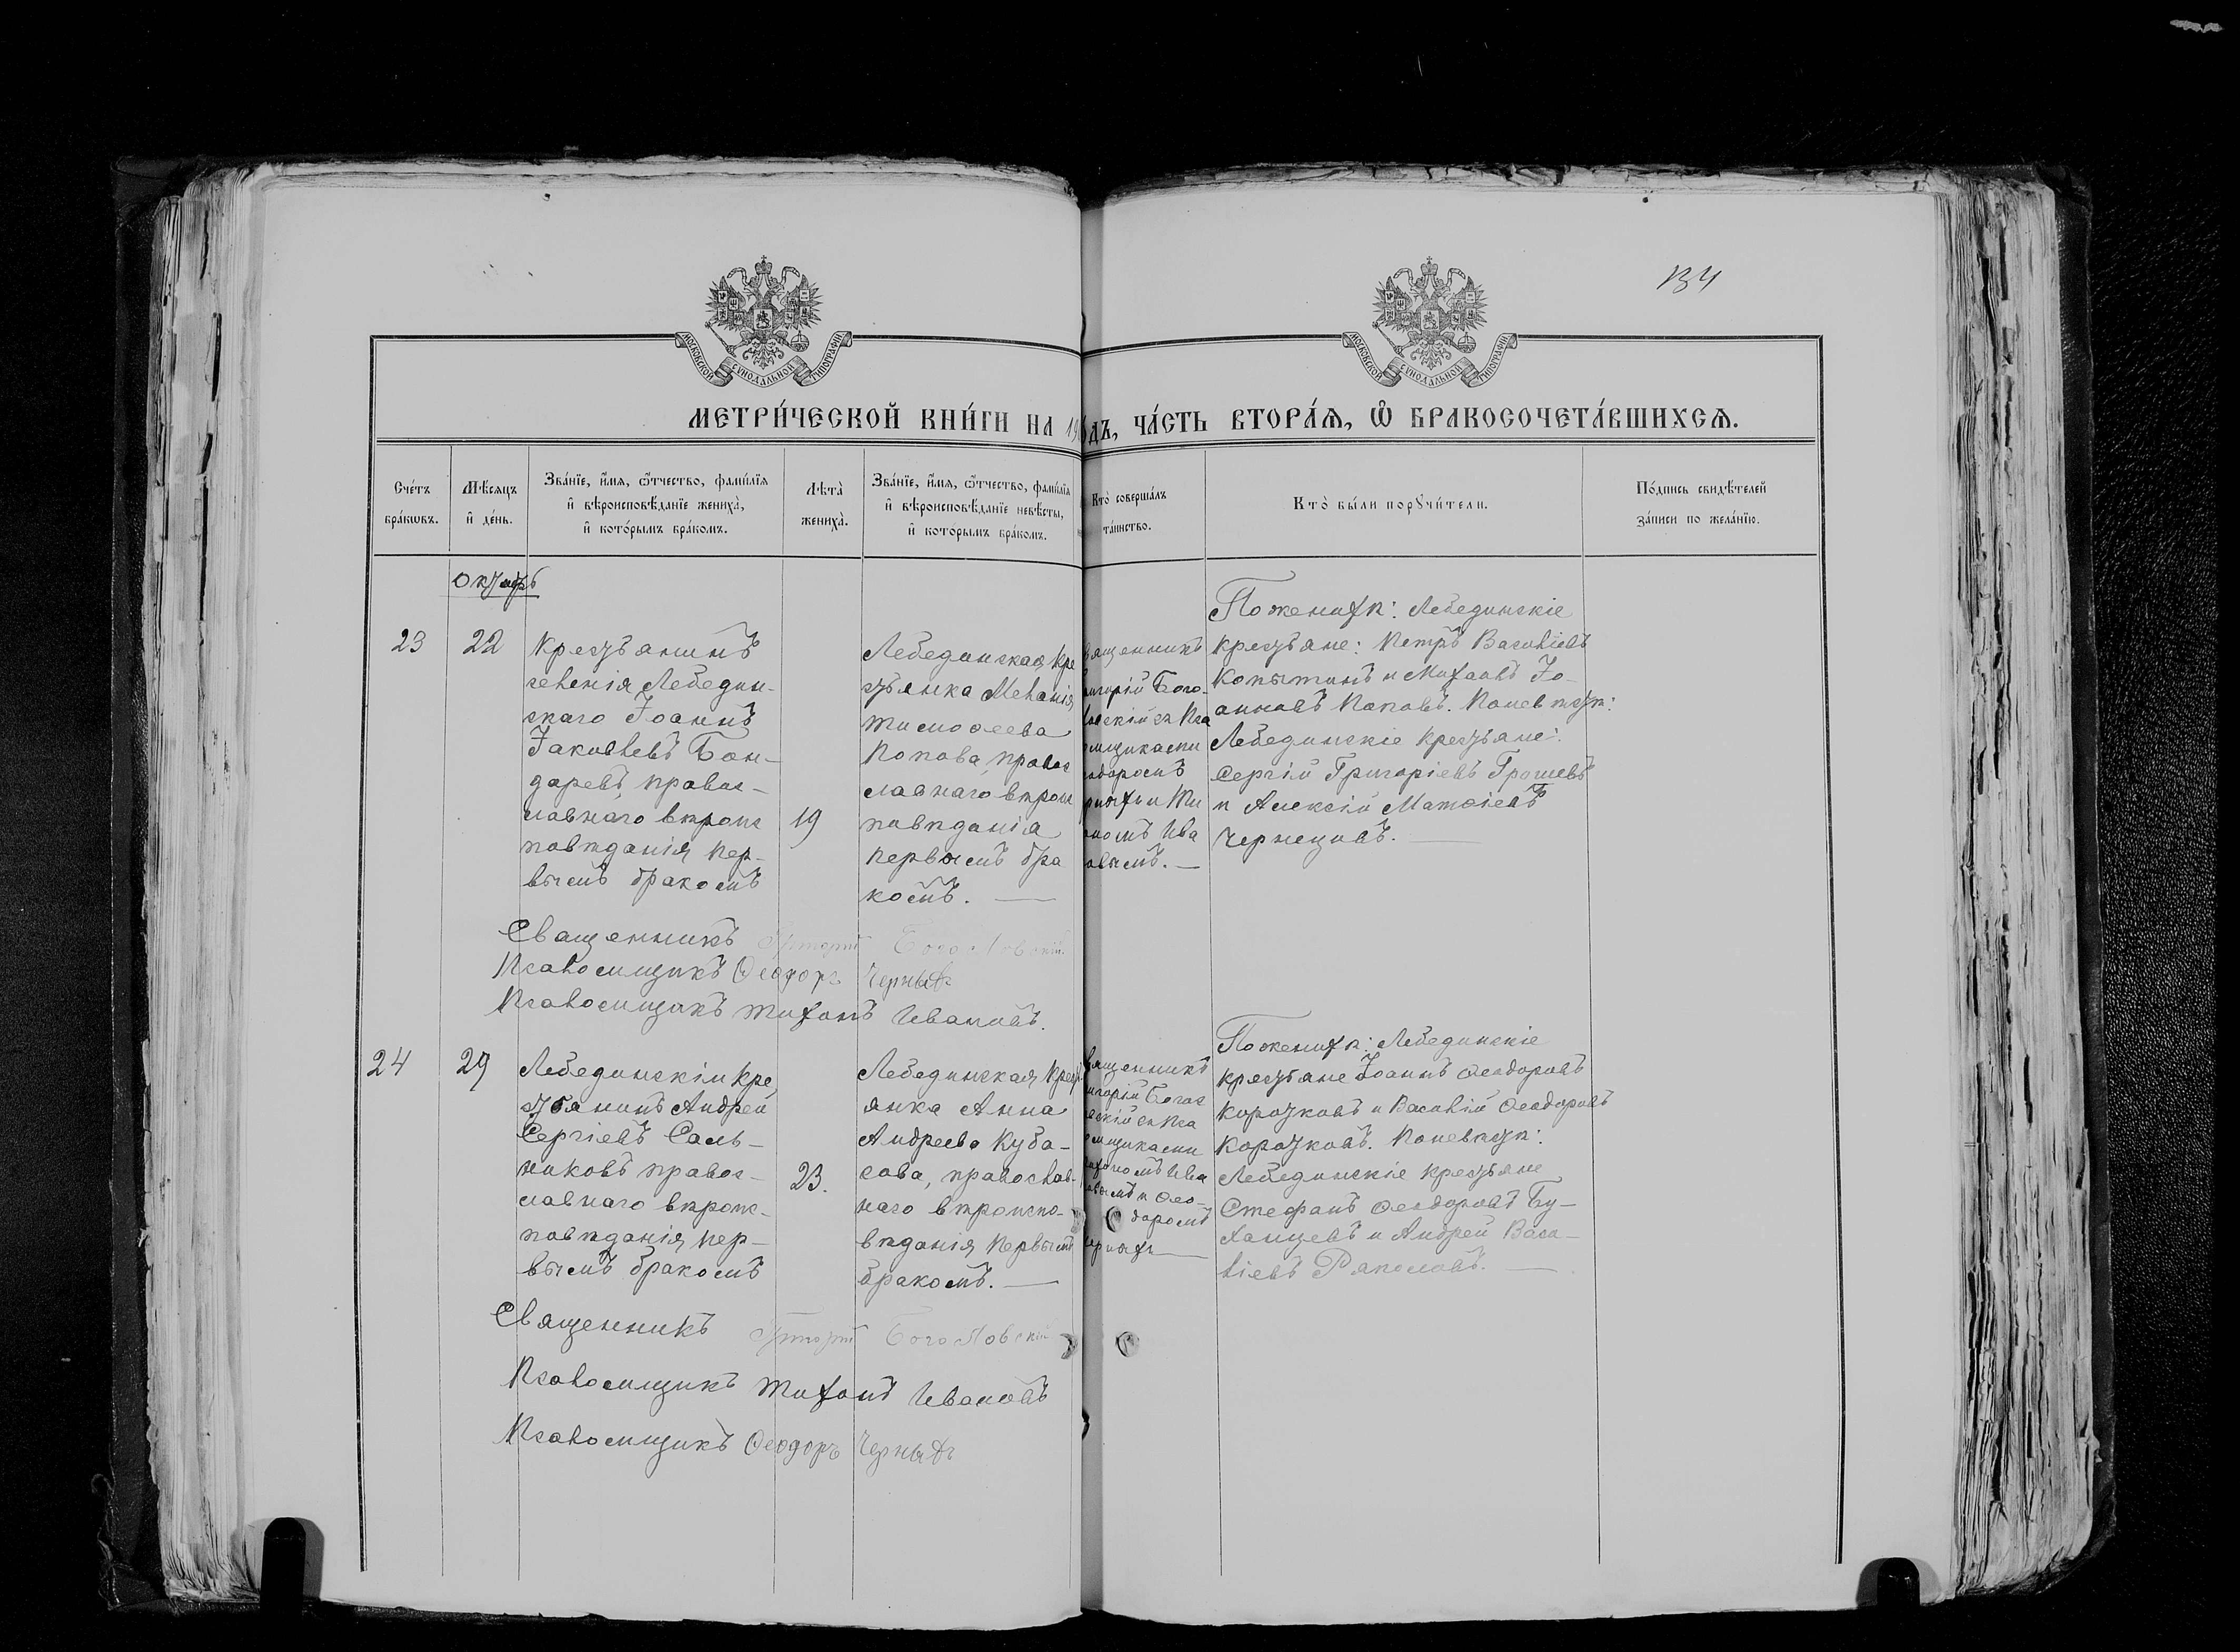 134
МОСКОВСКОЙ СѴНОДАЛЬНОЙ ТИПОГРАФІИ
МОСКОВСКОЙ СѴНОДАЛЬНОЙ ТИПОГРАФІИ
МЕТРИ́ЧЕСКОЙ КНИ́ГИ НА 19 ДЪ, ЧА́СТЬ ВТОРА́Ѧ, Ѡ҆ БРАКОСОЧЕТА́ВШИХСѦ.
Сче́тъ
бра́кѡвъ.
Мѣ́сяцъ
и҆ де́нь.
Зва́нїе, и҆́мя, ѻ҆́тчество, фами́лїя
и҆ вѣроисповѣ́данїе жениха̀,
и҆ кото́рымъ бра́комъ.
Лѣта̀
жениха̀.
Зва́нїе, и҆́мя, ѻ҆́тчество, фами́лїя
и҆ вѣроисповѣ́данїе невѣ́сты,
и҆ кото́рымъ бра́комъ.
Кто̀ соверша́лъ
та́инство.
Кто̀ бы́ли порꙋчи́тели.
По́дпись свидѣ́телей
за́писи по жела́нїю.
Октябрь
23
22
Крестьянинъ
селенія Лебедин-
скаго Іоаннъ
Іаковлевъ Бон-
даревъ, правос-
лавнаго вѣроис
повѣданія пер-
вымъ бракомъ
19
Лебединская кре
стьянка Меланія
Тимоѳеева
Попова, правос
лавнаго вѣроис
повѣданія
первымъ бра
комъ. —
вященникъ
ригорій Бого-
ловскій съ Пса
омщиками
одоромъ
рныхъ и Ти
ономъ Ива
овымъ. —
По женихѣ: Лебединскіе
крестьяне: Петръ Василіевъ
Копытинъ и Михаилъ Іо-
анновъ Поповъ. По невѣстѣ:
Лебединскіе крестьяне:
Сергій Григоріевъ Грошевъ
и Алексій Матѳіевъ
Чернецовъ. —
Священникъ Григорій Богословскій
Псаломщикъ Ѳеодоръ Черныхъ
Псаломщикъ Тихонъ Ивановъ.
24
29
Лебединскій кре
стьянинъ Андрей
Сергіевъ Саль-
никовъ правос-
лавнаго вѣроис-
повѣданія пер-
вымъ бракомъ
23.
Лебединская крест
янка Анна
Андреева Куба-
сова, православ-
наго вѣроиспо-
вѣданія первымъ
бракомъ. —
вященникъ
игорій Богос
вскій съ Пса
омщиками
ихономъ Ива
овымъ и Ѳео-
доромъ
ерныхъ —
По женихѣ: Лебединскіе
крестьяне Іоаннъ Ѳеодоровъ
Коротковъ и Василій Ѳеодоровъ
Коротковъ. По невѣстѣ:
Лебединскіе крестьяне
Стефанъ Ѳеодоровъ Бу-
ханцевъ и Андрей Васи-
ліевъ —
Священникъ Григорій Богословскій
Псаломщикъ Тихонъ Ивановъ
Псаломщикъ Ѳеодоръ Черныхъ